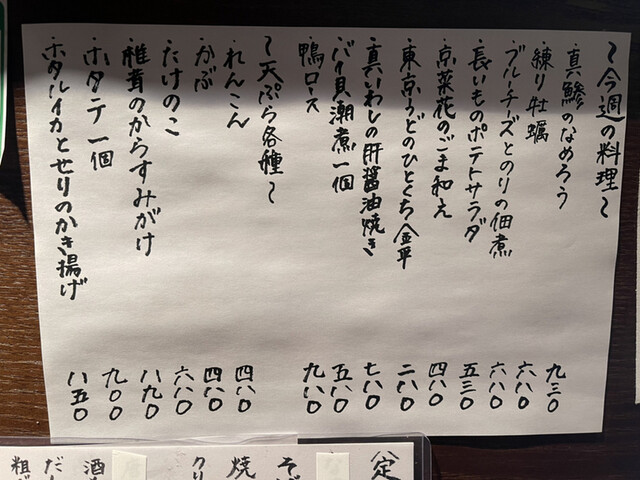 〜今週の料理〜
真鯵のなめろう 九三〇
練り牡蠣 六八〇
ブルーチーズとのりの佃煮 六八〇
長いものポテトサラダ 五三〇
京菜花のごま和え 四八〇
東京うどのひとくち金平 二八〇
真いわしの肝醤油焼き 七八〇
バイ貝潮煮一個 五八〇
鴨ロース 九八〇
〜天ぷら各種〜
れんこん 四八〇
かぶ 四八〇
たけのこ 六八〇
椎茸のからすみがけ 八九〇
ホタテ 一個 九〇〇
ホタルイカとせりのかき揚げ 八五〇
焼